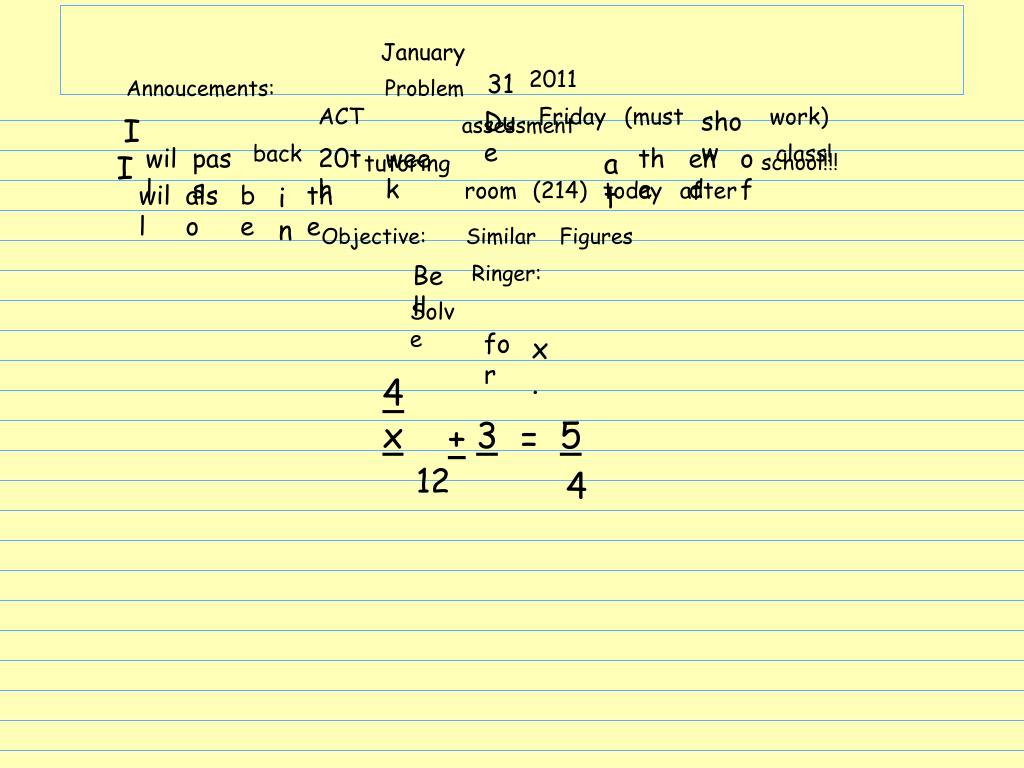 January 31 2011
Annoucements:
ACT Problem Due Friday (must show work)
I will pass back 20th week assessment at the end of class!
I will also be in the tutoring room (214) today after school!!!
Objective: Similar Figures
Bell Ringer:
Solve for x.
4x + 3 = 5
12 4